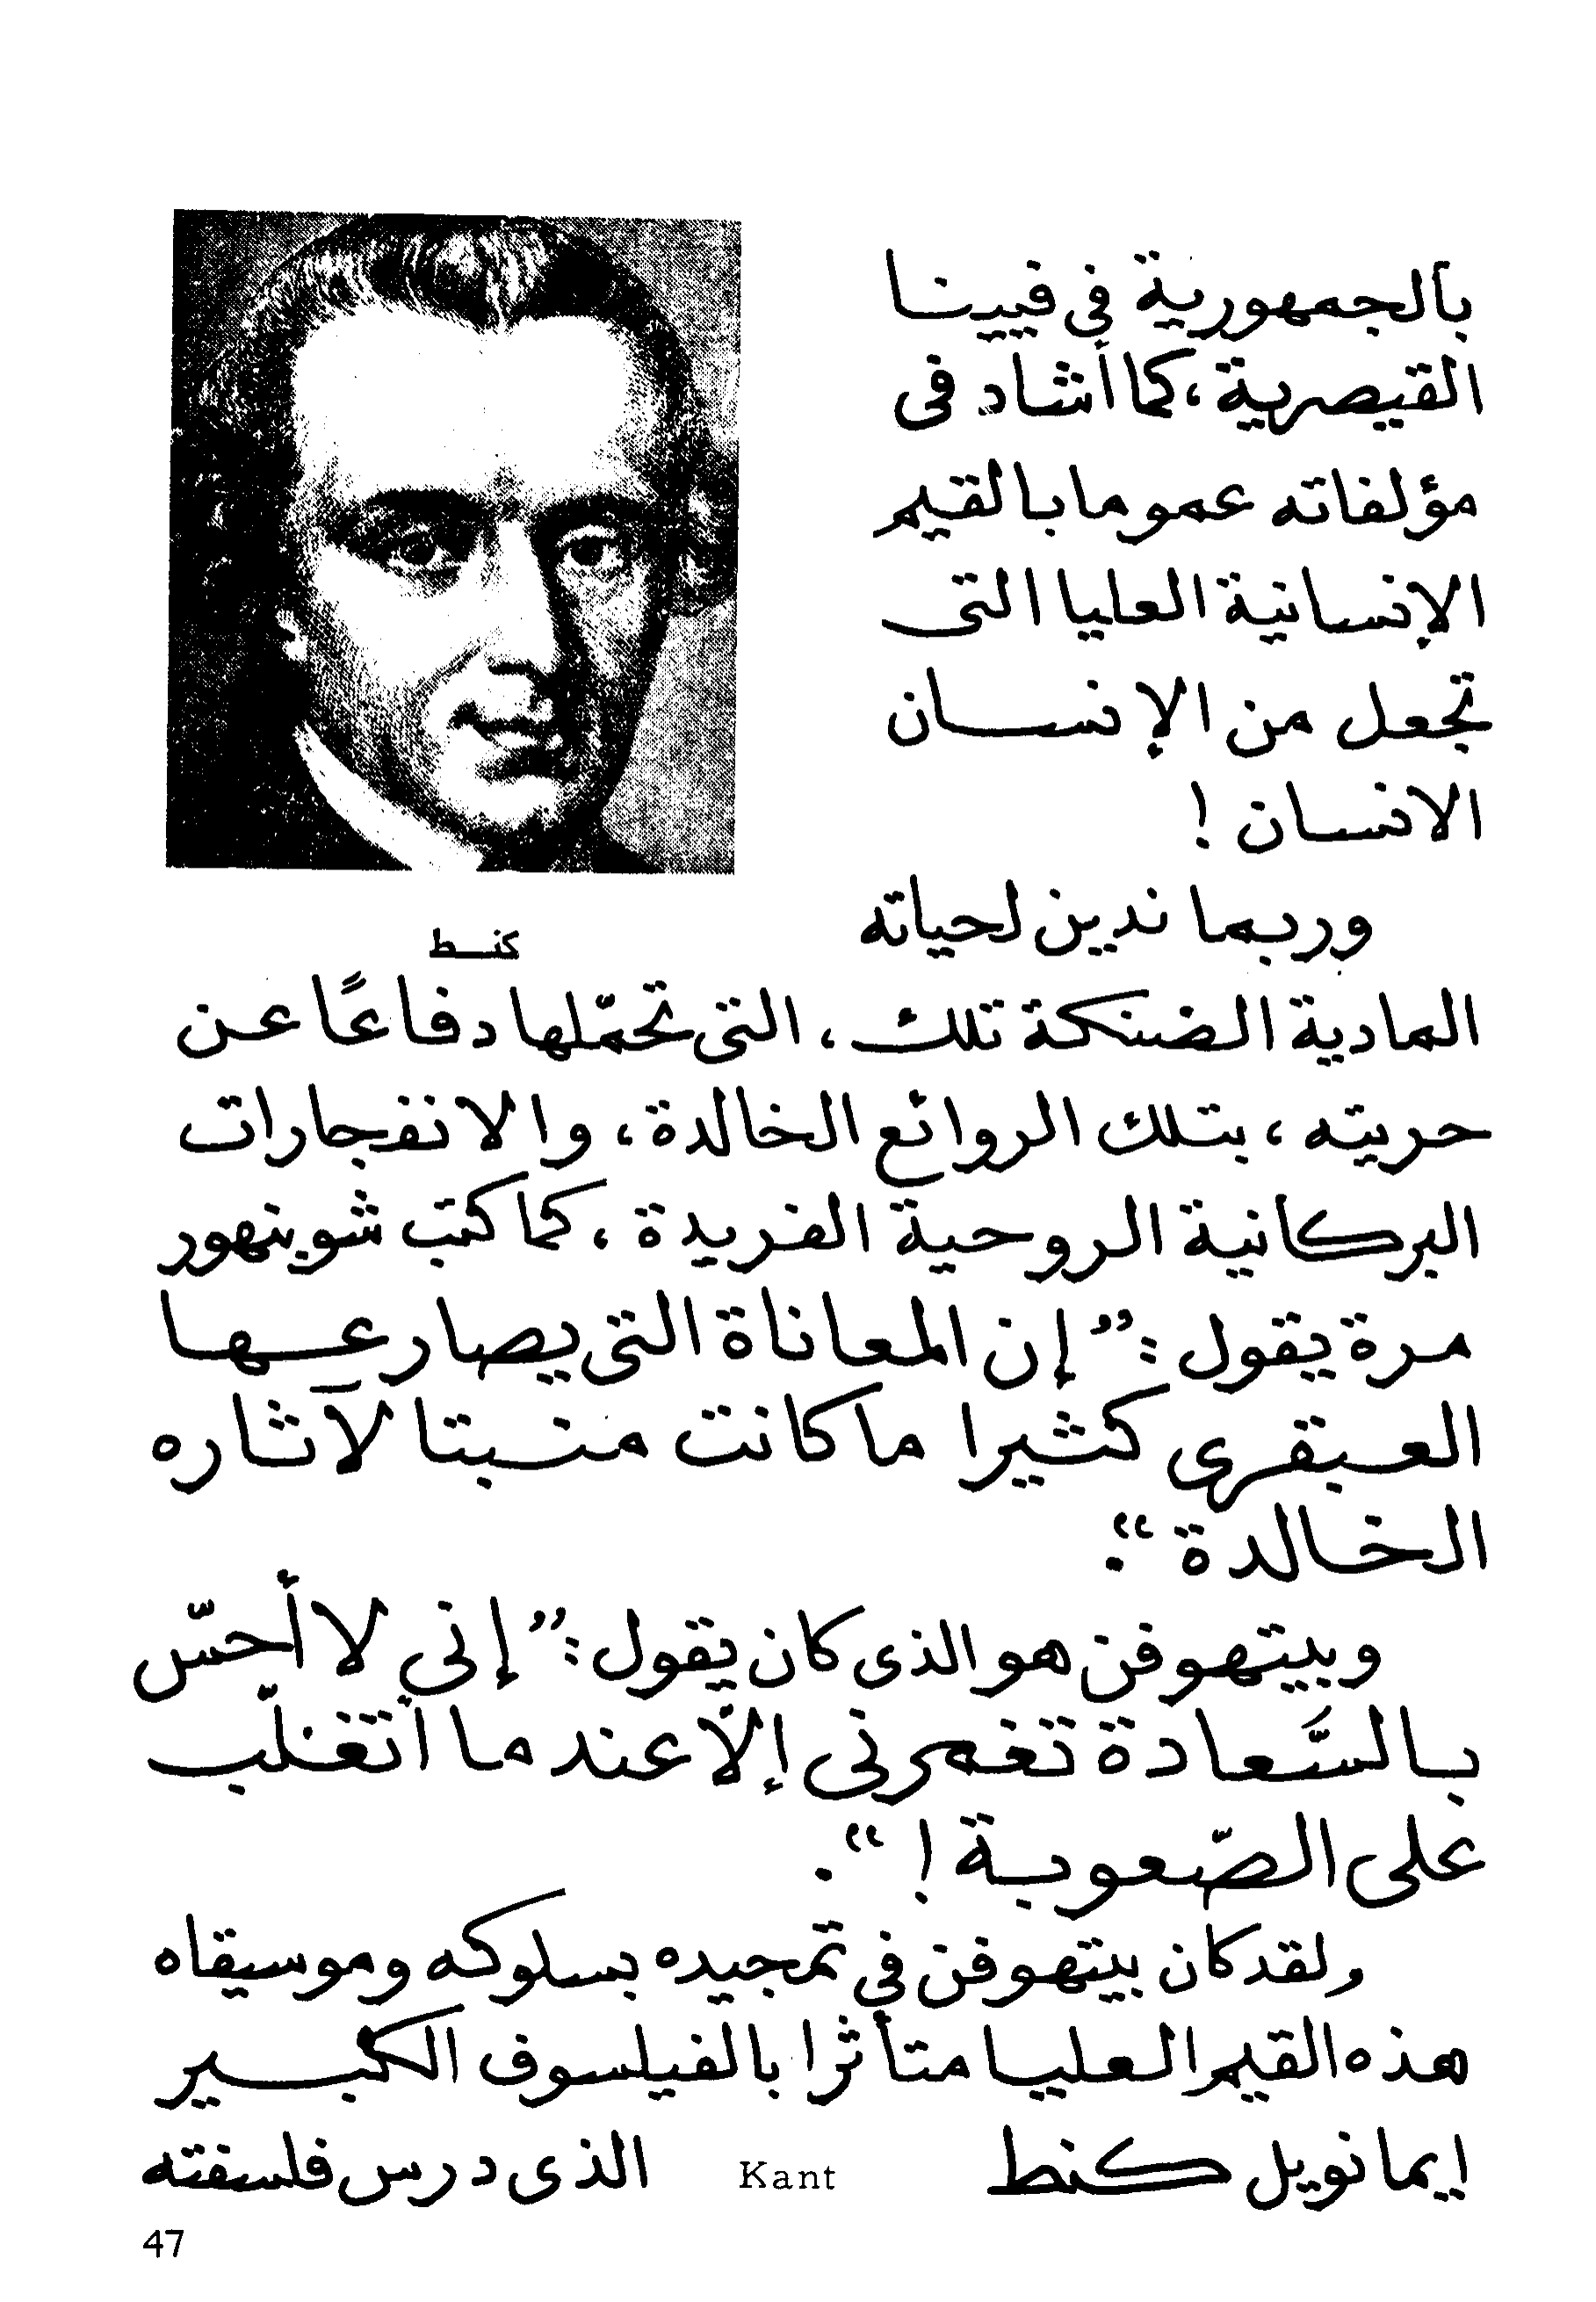 بالجمهورية فى فيينا
القيصرية ، كما أشاد فى
مؤلفاته عموما بالقيم
الإنسانية العليا التى
تجعل من الإنسان
الانسان !
كنط
وربما ندين لحياته
المادية الضنكة تلك ، التى تحمّلها دفاعًا عن
حريته ، بتلك الروائع الخالدة ، والانفجارات
البركانية الروحية الفريدة ، كما كتب شوبنهور
مرة يقول : ” إن المعاناة التى يصارعها
العبقرى كثيرا ما كانت منبتا لآثاره
الخالدة “.
وبيتهوفن هو الذى كان يقول : ” إنى لا أحسّ
بالسَّعادة تغمرنى إلاّ عندما أتغلّب
على الصّعوبة ! “ .
ولقد كان بيتهوفن في تمجيده بسلوكه وموسيقاه
هذه القيم العليا متأثرا بالفيلسوف الكبير
إيمانويل كنط Kant الذى درس فلسفته
47